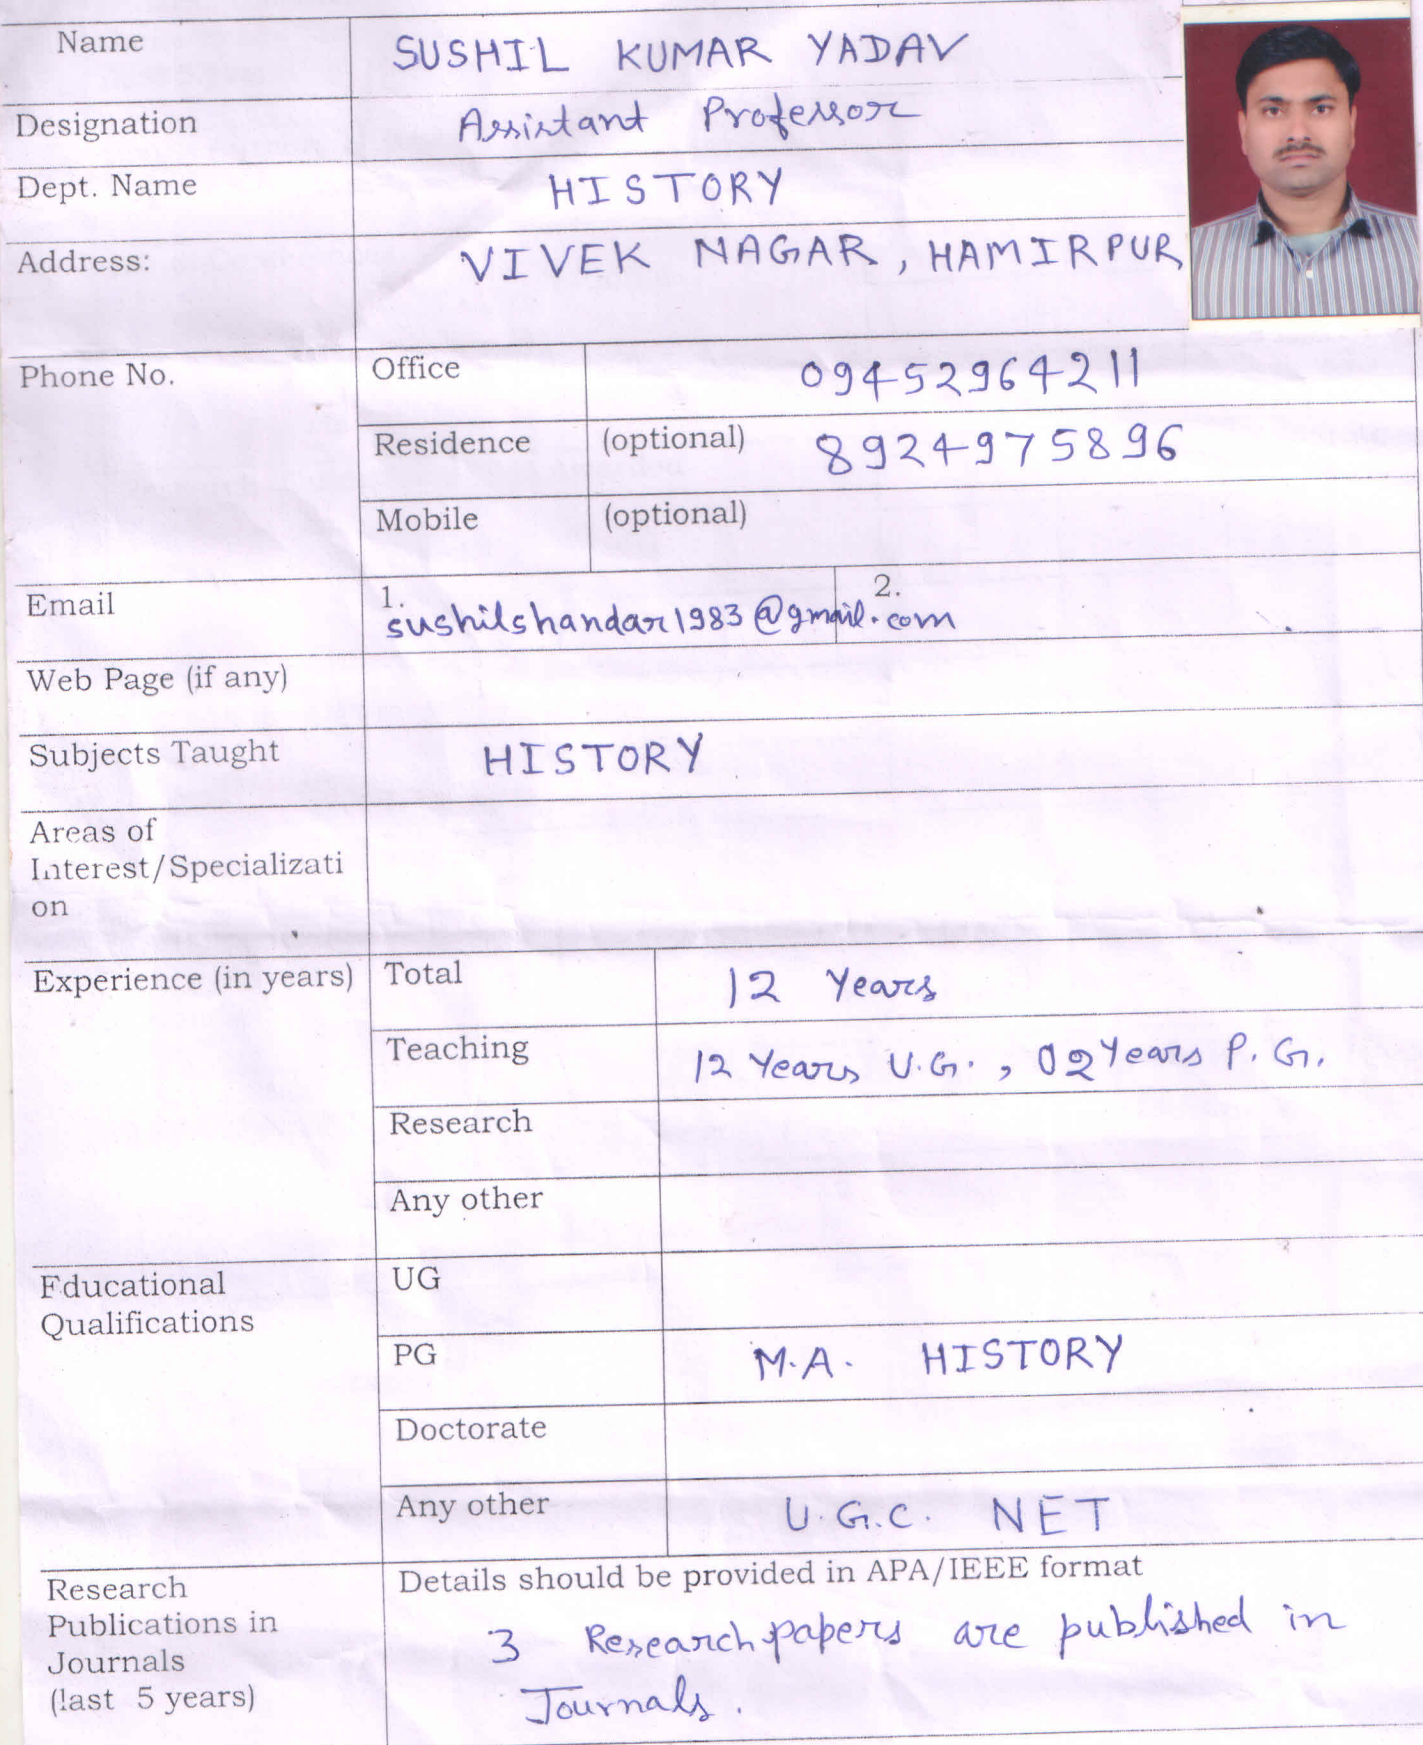 Name SUSHIL KUMAR YADAV
Designation Assistant Professor
Dept. Name HISTORY
Address: VIVEK NAGAR, HAMIRPUR
Phone No. Office 09452964211
Residence (optional) 8924975896
Mobile (optional)
Email 1. 2.
sushilshandar1983@gmail.com
Web Page (if any)
Subjects Taught HISTORY
Areas of
Interest/Specializati
on
Experience (in years) Total 12 Years
Teaching 12 Years U.G., 02 Years P.G.
Research
Any other
Educational UG
Qualifications
PG M.A. HISTORY
Doctorate
Any other U.G.C. NET
Research Details should be provided in APA/IEEE format
Publications in 3 Research papers are published in
Journals
(last 5 years) Journals.